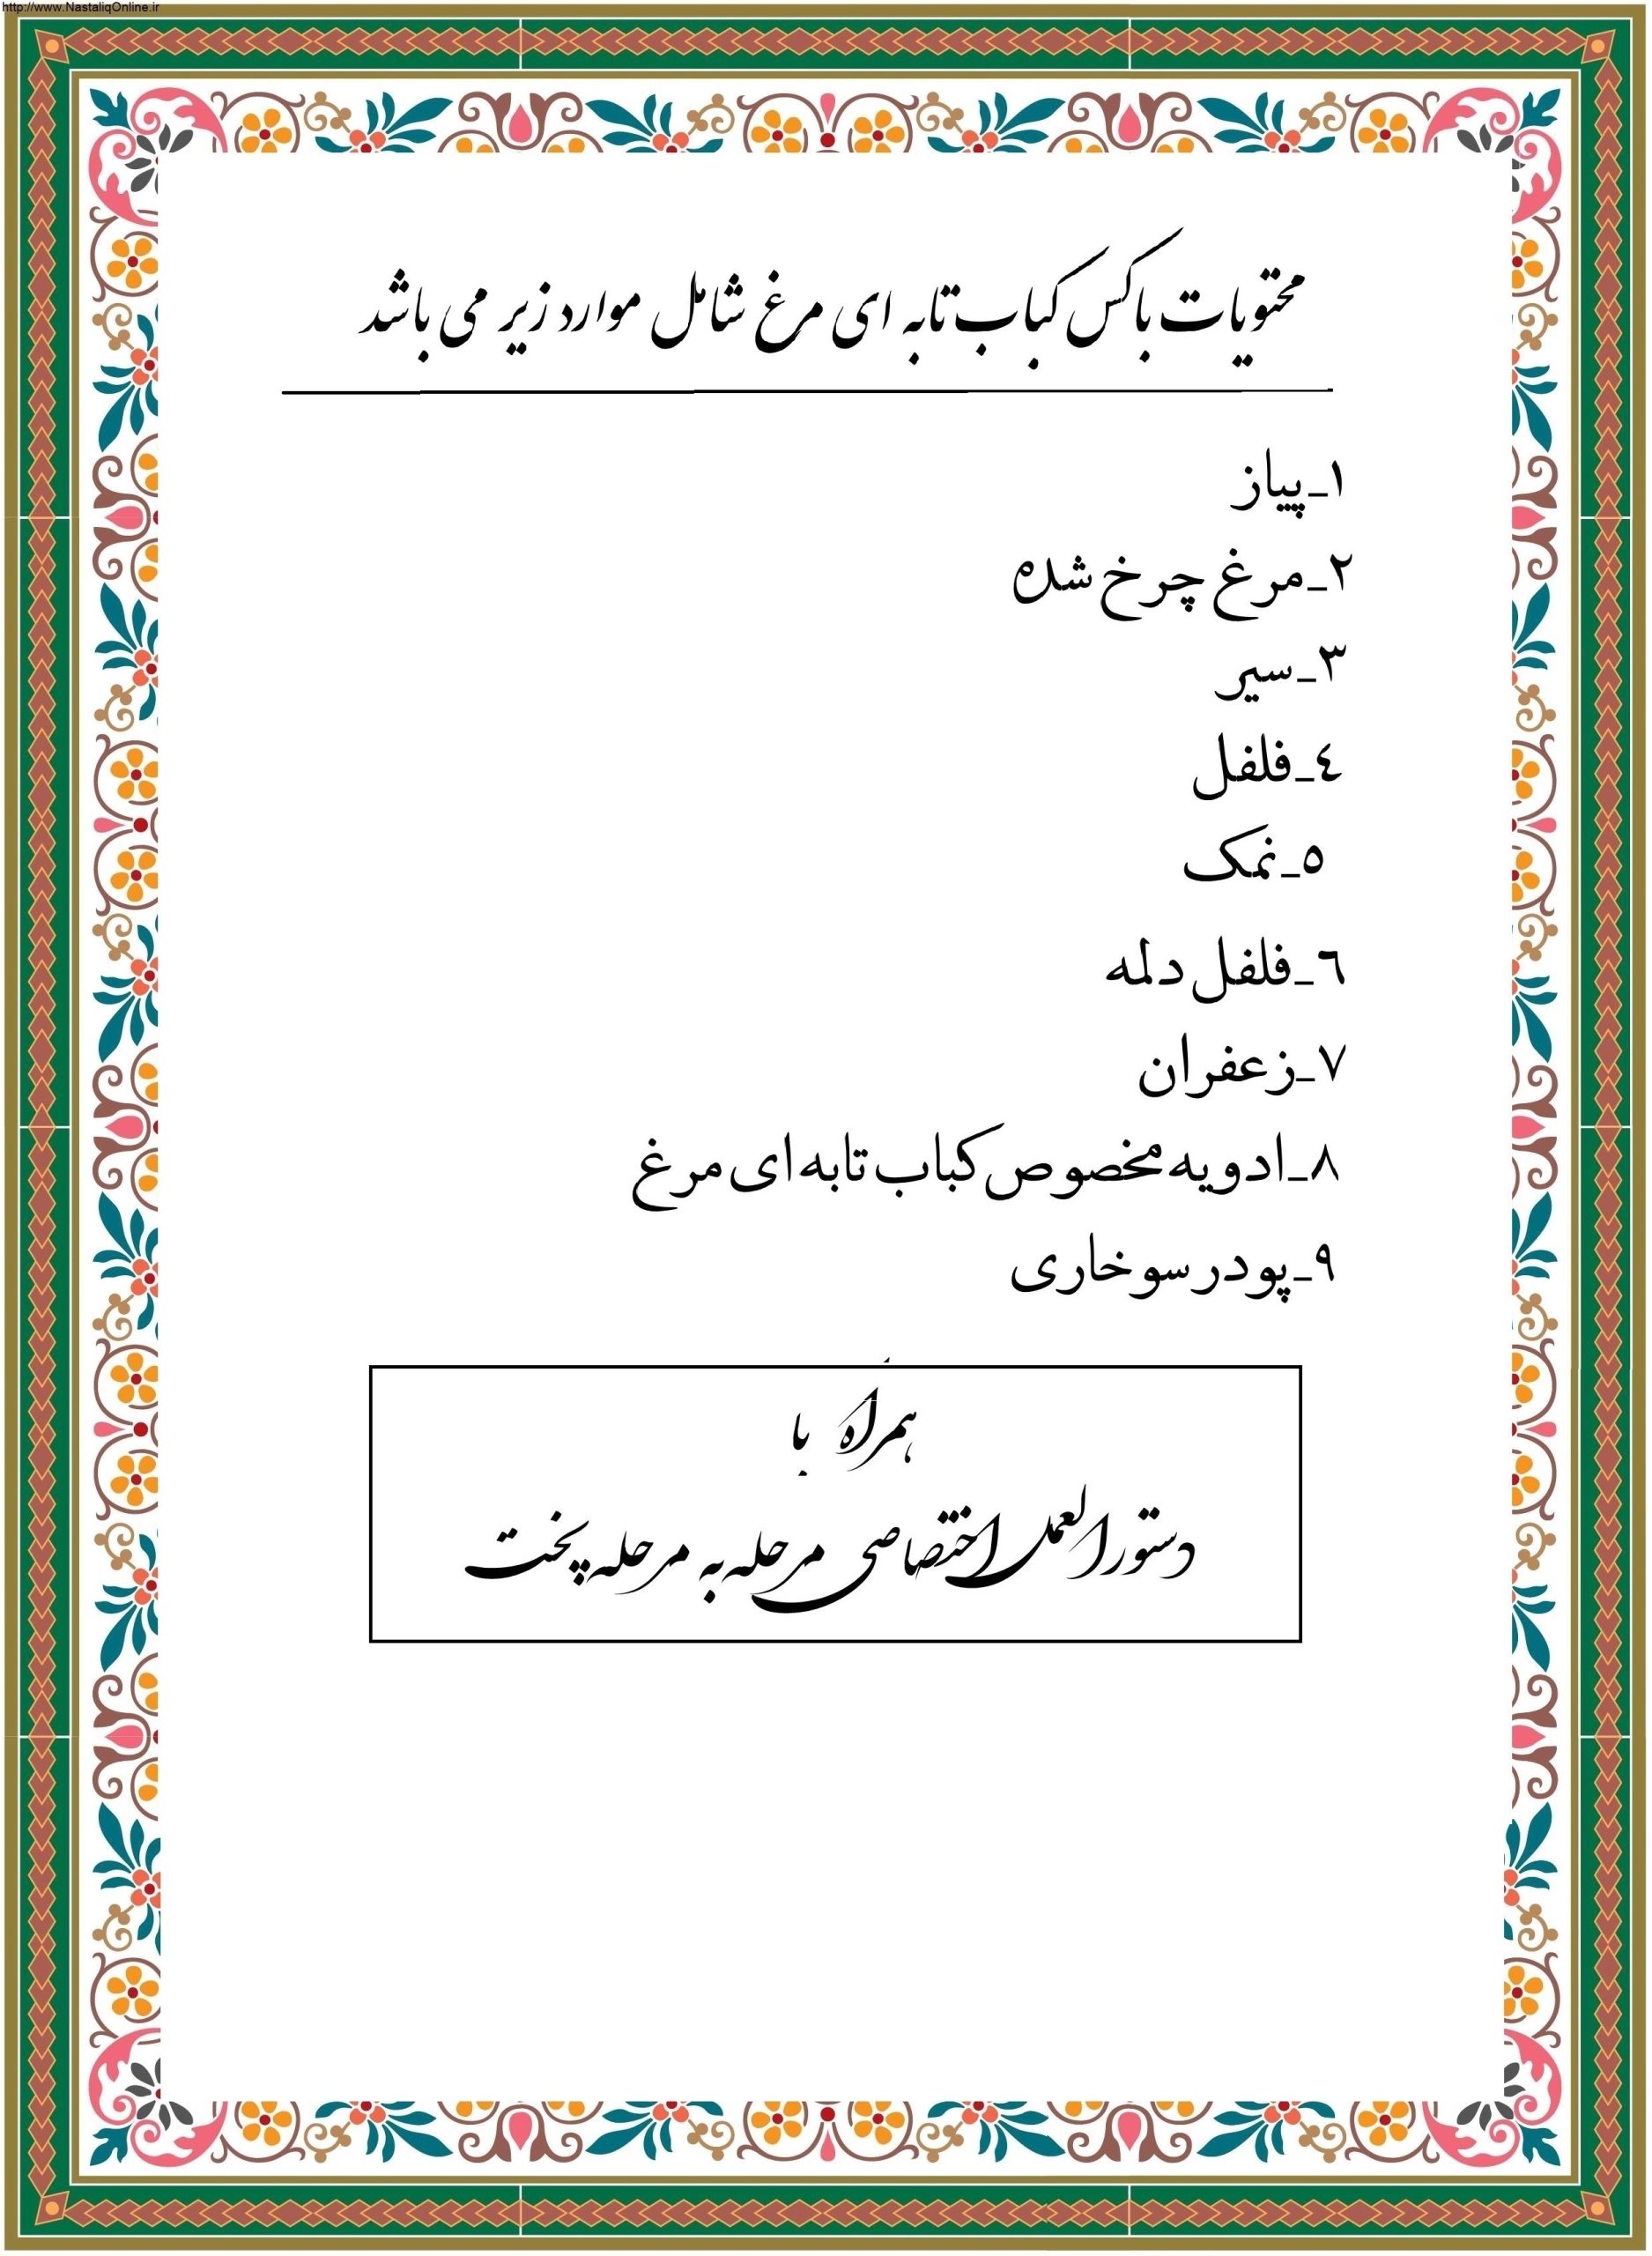 http://www.NastaliqOnline.ir
محتویات باکس کباب تابه ای مرغ شامل موارد زیر می باشد
۱_پیاز
۲_مرغ چرخ شده
۳_سیر
٤_فلفل
٥_نمک
٦_فلفل دلمه
۷_زعفران
۸_ادویه مخصوص کباب تابه ای مرغ
۹_پودر سوخاری
همراه با
دستورالعمل اختصاصی مرحله به مرحله پخت